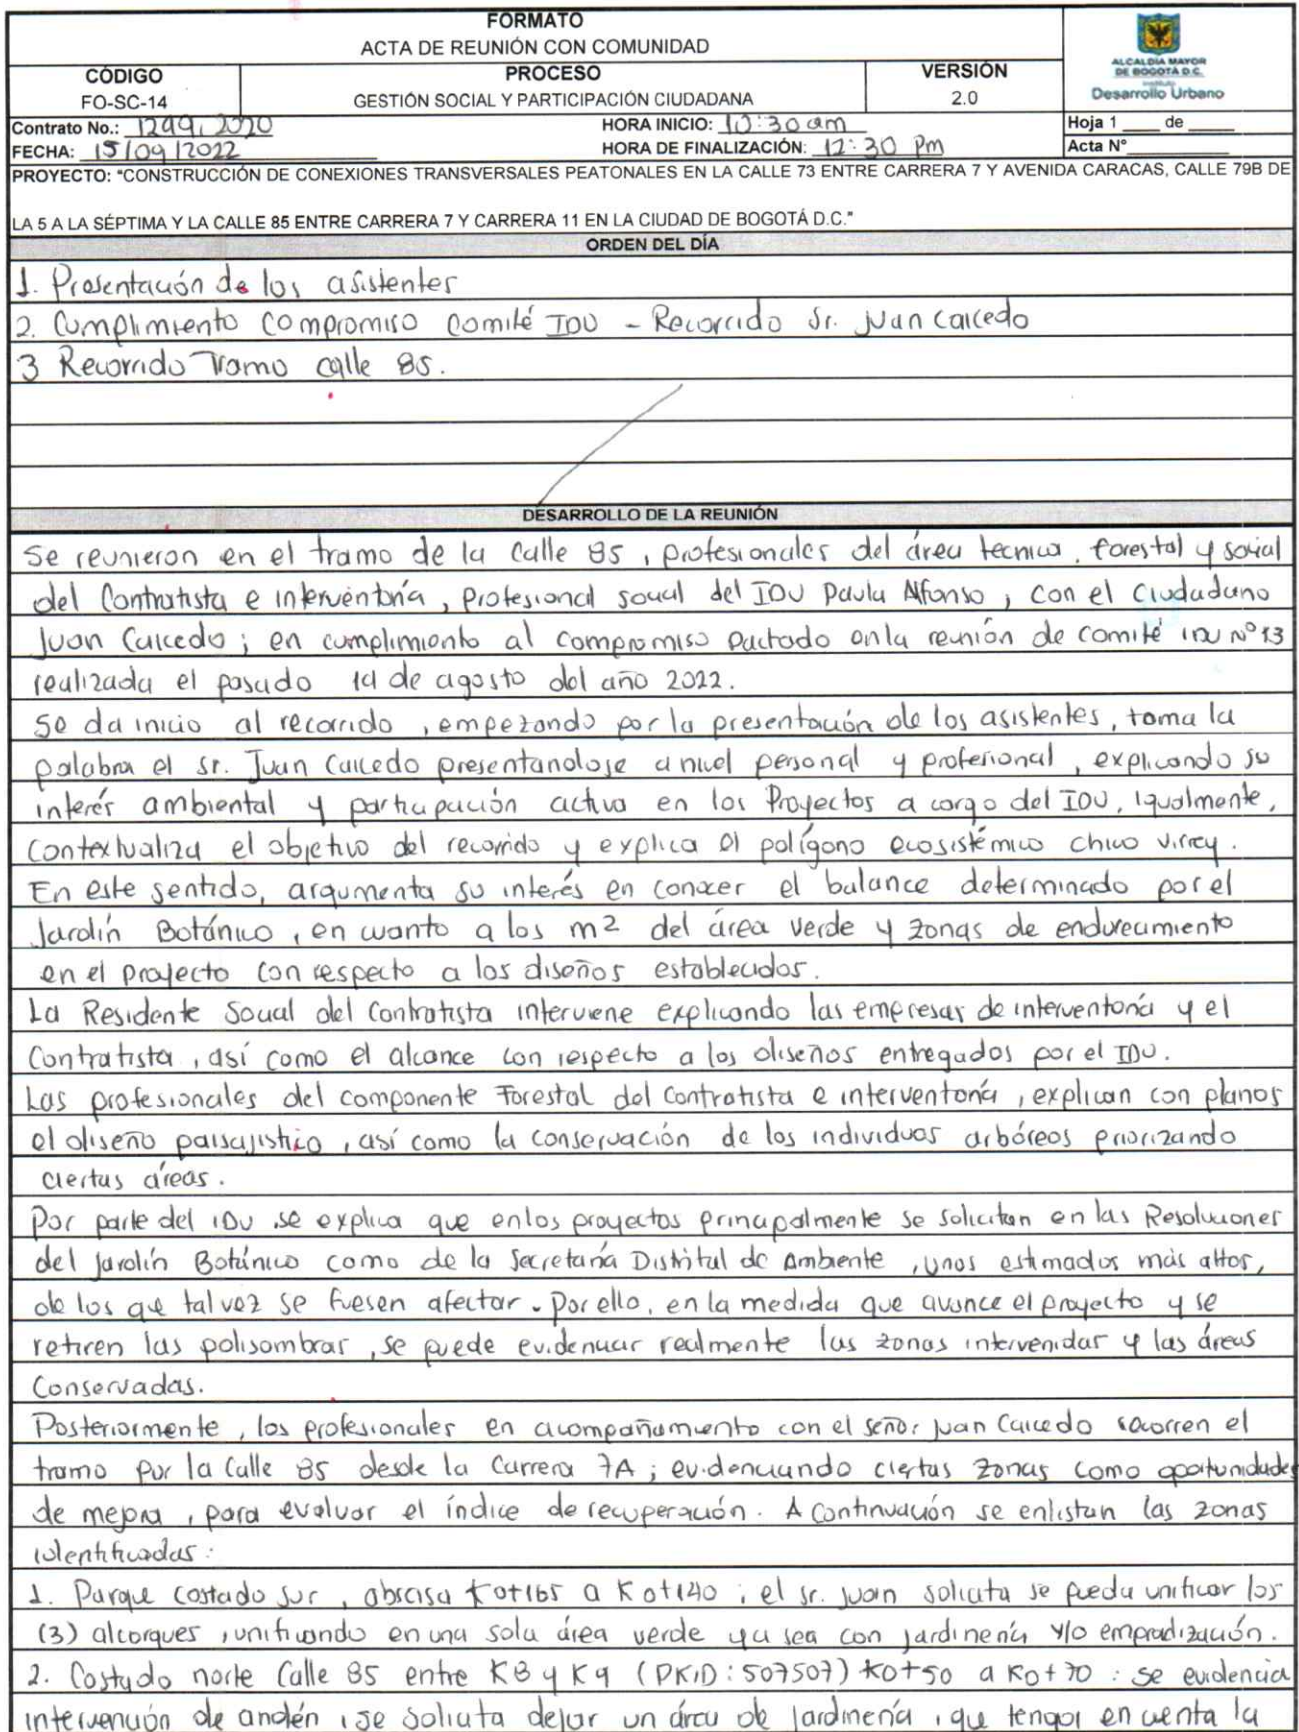 FORMATO
ACTA DE REUNIÓN CON COMUNIDAD
CÓDIGO
FO-SC-14
PROCESO
GESTIÓN SOCIAL Y PARTICIPACIÓN CIUDADANA
VERSIÓN
2.0
ALCALDÍA MAYOR
DE BOGOTÁ D.C.
Instituto
Desarrollo Urbano
Contrato No.: 1299, 2020
HORA INICIO: 10:30 am
Hoja 1 ____ de _____
FECHA: 15/09/2022
HORA DE FINALIZACIÓN: 12:30 Pm
Acta N°
PROYECTO: "CONSTRUCCIÓN DE CONEXIONES TRANSVERSALES PEATONALES EN LA CALLE 73 ENTRE CARRERA 7 Y AVENIDA CARACAS, CALLE 79B DE
LA 5 A LA SÉPTIMA Y LA CALLE 85 ENTRE CARRERA 7 Y CARRERA 11 EN LA CIUDAD DE BOGOTÁ D.C."
ORDEN DEL DÍA
1. Presentación de los asistentes
2. Cumplimiento compromiso Comité IDU - Recorrido Sr. Juan Caicedo
3 Recorrido Tramo calle 85.
DESARROLLO DE LA REUNIÓN
Se reunieron en el tramo de la Calle 85, profesionales del área tecnica, forestal y social
del Contratista e interventoría, profesional social del IDU Paula Alfonso, con el Ciudadano
Juan Caicedo; en cumplimiento al compromiso pactado en la reunión de comité IDU N° 13
realizada el pasado 19 de agosto del año 2022.
Se da inicio al recorrido, empezando por la presentación de los asistentes, toma la
palabra el sr. Juan Caicedo presentandose a nivel personal y profesional, explicando su
interés ambiental y participación activa en los Proyectos a cargo del IDU, igualmente,
Contextualiza el objetivo del recorrido y explica el polígono ecosistémico chico virrey.
En este sentido, argumenta su interés en conocer el balance determinado por el
Jardín Botánico, en cuanto a los m2 del área verde y zonas de endurecimiento
en el proyecto con respecto a los diseños establecidos.
La Residente Social del Contratista interviene explicando las empresas de interventoría y el
Contratista, así como el alcance con respecto a los diseños entregados por el IDU.
Las profesionales del componente Forestal del Contratista e interventoría, explican con planos
el diseño paisajistico, así como la conservación de los individuos arbóreos priorizando
ciertas áreas.
Por parte del IDU se explica que en los proyectos principalmente se solicitan en las Resoluciones
del Jardín Botánico como de la Secretaría Distrital de Ambiente, unos estimados más altos,
de los que tal vez se fuesen afectar. Por ello, en la medida que avance el proyecto y se
retiren las polisombras, se puede evidenciar realmente las zonas intervenidas y las áreas
Conservadas.
Posteriormente, los profesionales en acompañamiento con el señor Juan Caicedo recorren el
tramo por la Calle 85 desde la Carrera 7A; evidenciando ciertas zonas como oportunidades
de mejora, para evaluar el índice de recuperación. A Continuación se enlistan las zonas
identificadas:
1. Parque costado sur, abscisa K0+165 a K0+140; el sr. Juan solicita se pueda unificar los
(3) alcorques, unificando en una sola área verde ya sea con jardinería y/o empradización.
2. Costado norte Calle 85 entre K8 y K9 (PKID: 507507) K0+50 a K0+70: se evidencia
intervención de andén, se solicita dejar un área de jardinería, que tenga en cuenta la